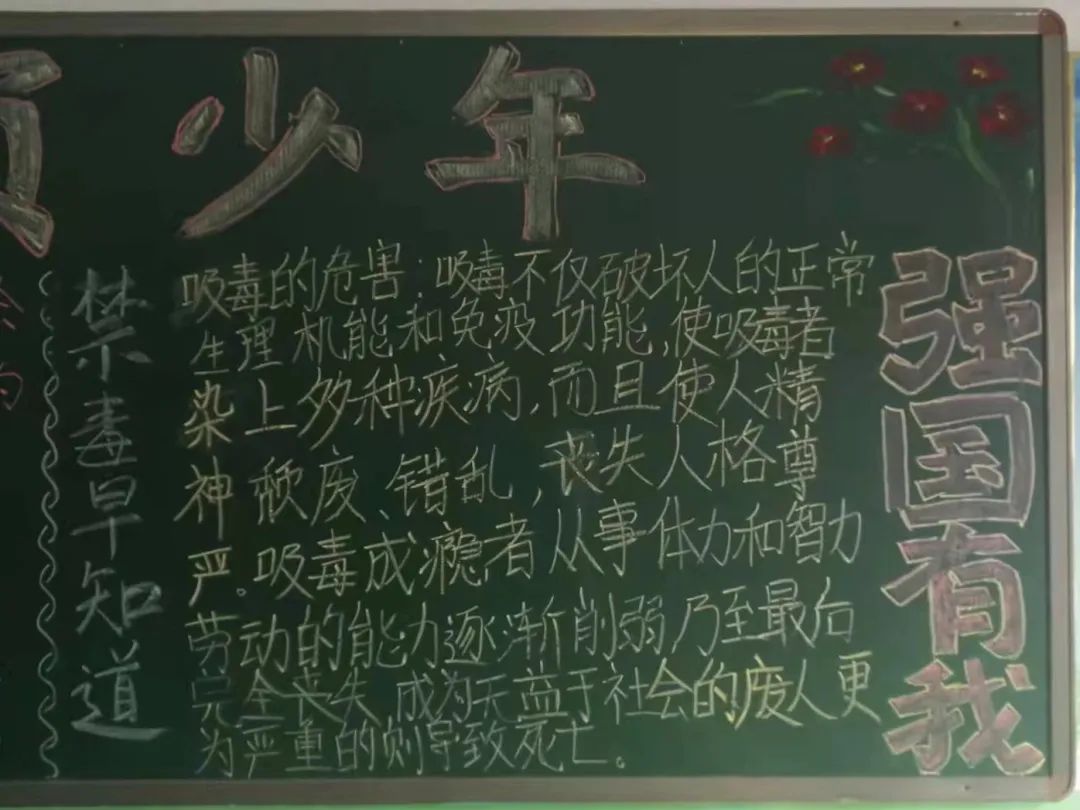 少年
禁毒早知道
吸毒的危害:吸毒不仅破坏人的正常
生理机能和免疫功能,使吸毒者
染上多种疾病,而且使人精
神颓废、错乱,丧失人格尊
严。吸毒成瘾者从事体力和智力
劳动的能力逐渐削弱乃至最后
完全丧失,成为无益于社会的废人更
为严重的则导致死亡。
强国有我